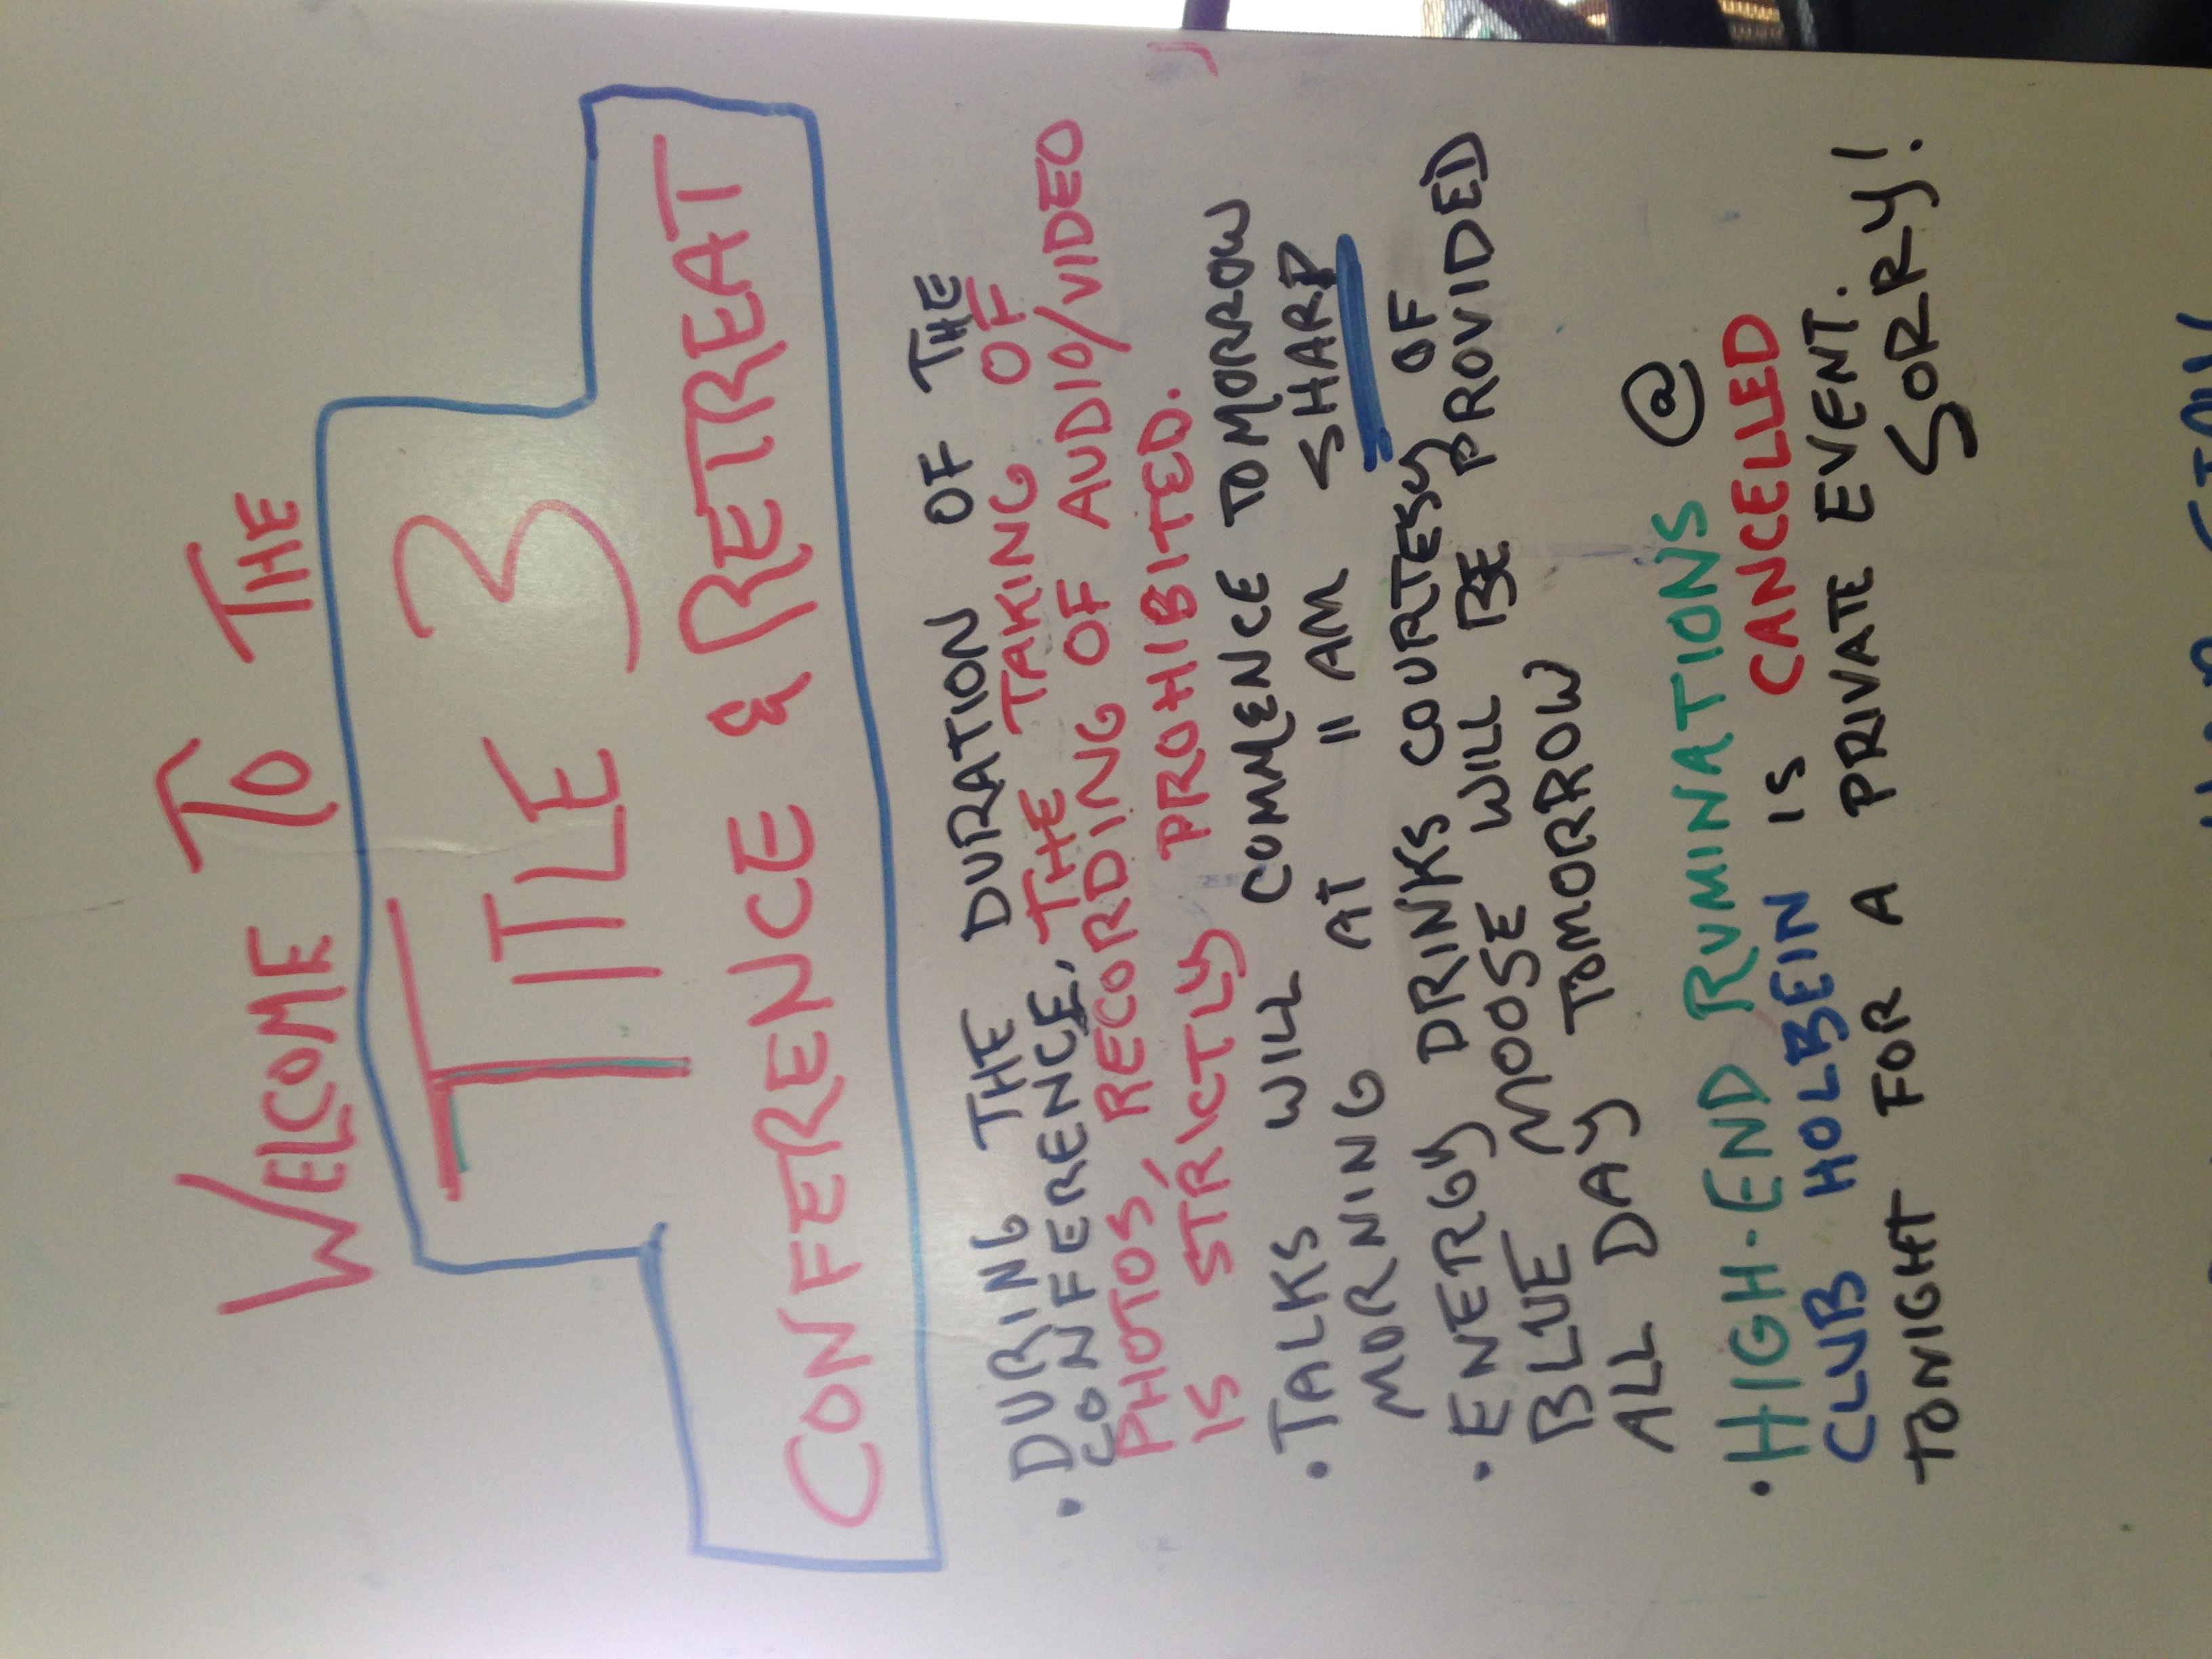 WELCOME TO THE
TITLE 3
CONFERENCE & RETREAT
• DURING THE DURATION OF THE
CONFERENCE, THE TAKING OF
PHOTOS, RECORDING OF AUDIO/VIDEO
IS STRICTLY PROHIBITED.
• TALKS WILL COMMENCE TOMORROW
MORNING AT 11 AM SHARP
• ENERGY DRINKS COURTESY OF
BLUE MOOSE WILL BE PROVIDED
ALL DAY TOMORROW
• HIGH-END RUMINATIONS @
CLUB HOLBEIN IS CANCELLED
TONIGHT FOR A PRIVATE EVENT.
SORRY!